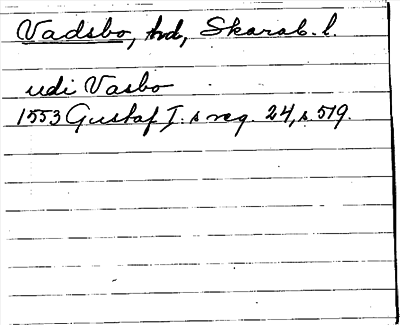 Vadsbo, hd, Skarab. l.
udi Vasbo
1553 Gustaf I. s reg. 24, s. 519.